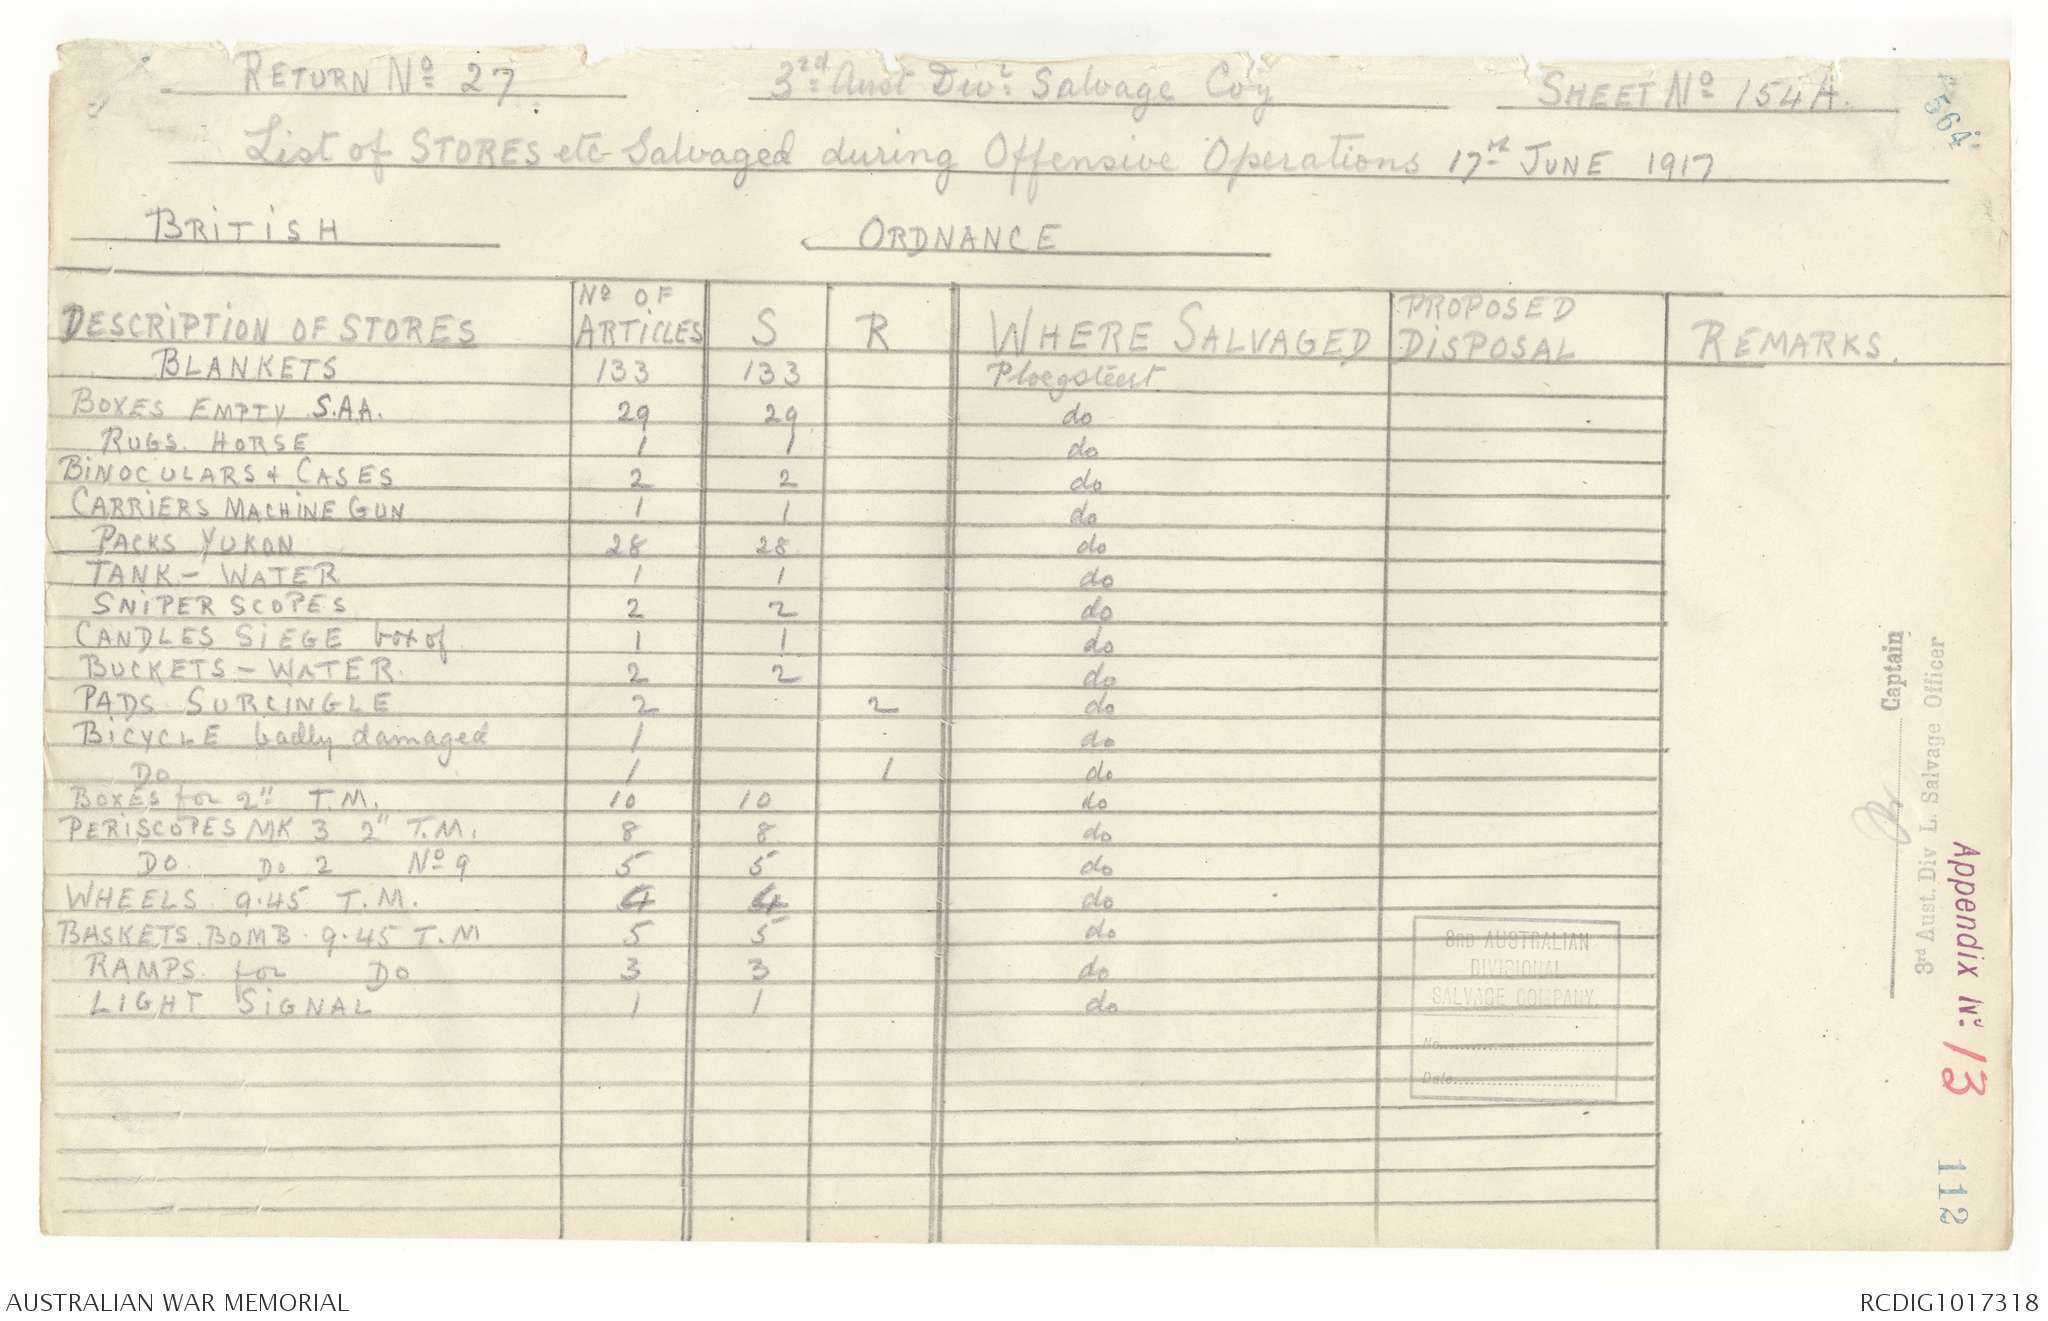 RETURN No 27 3rd Aust Divl Salvage Coy SHEET No 154A.
564
List of STORES etc Salvaged during Offensive Operations 17th JUNE 1917
BRITISH ORDNANCE
DESCRIPTION OF STORES No OF ARTICLES S R WHERE SALVAGED PROPOSED DISPOSAL REMARKS.
BLANKETS 133 133 Ploegsteert
BOXES EMPTY S.A.A. 29 29 do
RUGS. HORSE 1 1 do
BINOCULARS & CASES 2 2 do
CARRIERS MACHINE GUN 1 1 do
PACKS YUKON 28 28 do
TANK - WATER 1 1 do
SNIPER SCOPES 2 2 do
CANDLES SIEGE box of 1 1 do
BUCKETS - WATER. 2 2 do
PADS SURCINGLE 2 2 do
BICYCLE badly damaged 1 do
Do 1 1 do
BOXES for 2" T.M. 10 10 do
PERISCOPES MK 3 2" T.M. 8 8 do
Do. Do 2 No 9 5 5 do
WHEELS 9.45 T.M. 4 4 do
BASKETS. BOMB. 9.45 T.M 5 5 do
RAMPS for Do 3 3 do
LIGHT SIGNAL 1 1 do
3RD AUSTRALIAN
DIVISIONAL
SALVAGE COMPANY.
No.
Date.
Captain
3rd Aust. Div L. Salvage Officer
Appendix No: 13
112
AUSTRALIAN WAR MEMORIAL RCDIG1017318